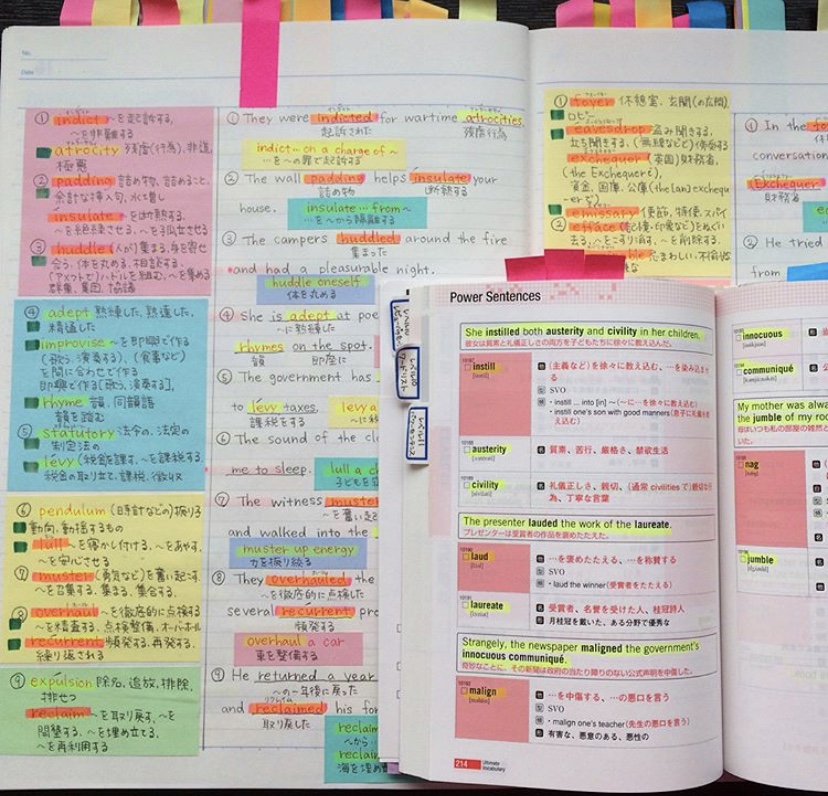 No.
Date
① indict ~を起訴する,
~を非難する
atrocity 残虐(行為), 非道,
極悪
② padding 詰め物, 詰めること,
余計な挿入句, 水増し
insulate ~を断熱する,
~を絶縁させる, ~を孤立させる
③ huddle (人が)集まる, 身を寄せ
合う, 体を丸める, 相談する,
群集, 集団, 協議
④ adept 熟練した, 熟達した,
精通した
improvise ~を即興で作る
(歌う, 演奏する), (食事など)
を間に合わせで作る
即興で作る[歌う, 演奏する],
rhyme 韻, 同韻語
韻を踏む
⑤ statutory 法令の, 法定の
制定法の
levy (税金を)課す, ~を課税する,
税金の取り立て, 課税, 徴収
⑥ pendulum (時計などの)振り子
動向, 動揺するもの
lull ~を寝かし付ける, ~をあやす,
~を安心させる
⑦ muster (勇気など)を奮い起こす
~を召集する, 集まる, 集合する,
⑧ overhaul ~を徹底的に点検する
~を精査する, 点検整備, オーバーホール
recurrent 頻発する, 再発する,
繰り返される
⑨ expulsion 除名, 追放, 排除,
排せつ
reclaim ~を取り戻す, ~を
開墾する, ~を埋め立てる,
~を再利用する
① They were indicted for wartime atrocities.
起訴された 残虐行為
indict… on a charge of ~
…を~の罪で起訴する
② The wall padding helps insulate your
詰め物 断熱する
house.
insulate … from ~
…を~から隔離する
③ The campers huddled around the fire
集まった
and had a pleasurable night.
huddle oneself
体を丸める
④ She is adept at
~に熟練した
rhymes on the spot.
韻 即座に
⑤ The government has
to levy taxes.
課税をする
⑥ The sound of the
me to sleep.
⑦ The witness
and walked into the
muster up energy
力を振り絞る
⑧ They overhauled the
~を徹底的に点検した
several recurrent
頻発する
overhaul a car
車を整備する
⑨ He returned a year
~の一年後に戻った
and reclaimed his
取り戻した
① foyer 休憩室, 玄関(の広間),
ロビー
eavesdrop 盗み聞きする,
立ち聞きする,
exchequer (英国)財務省,
(the Exchequer),
資金, 国庫, 公庫
emissary 使節, 特使, スパイ
② efface
① In the
Exchequer
財務省
② He tried
from
Power Sentences
She instilled both austerity and civility in her children.
彼女は質素と礼儀正しさの両方を子どもたちに徐々に教え込んだ。
instill
(主義など)を徐々に教え込む、…を染み込ませ
る
SVO
・instill ... into [in] ~(~に…を徐々に教え込む)
・instill one's son with good manners(息子に礼儀を教
え込む)
austerity
質素、苦行、厳格さ、禁欲生活
civility
礼儀正しさ、親切、(通常 civilities で)親切な行
為、丁寧な言葉
The presenter lauded the work of the laureate.
プレゼンターは受賞者の作品を褒めたたえた。
laud
…を褒めたたえる、…を称賛する
SVO
・laud the winner(受賞者をたたえる)
laureate
受賞者、名誉を受けた人、桂冠詩人
月桂冠を戴いた、ある分野で優秀な
Strangely, the newspaper maligned the government's
innocuous communiqué.
奇妙なことに、その新聞は政府の当たり障りのない公式声明を中傷した。
malign
…を中傷する、…の悪口を言う
SVO
・malign one's teacher(先生の悪口を言う)
有害な、悪意のある、悪性の
214 Ultimate
Vocabulary
innocuous
communiqué
My mother was alwa
the jumble of my roo
nag
jumble